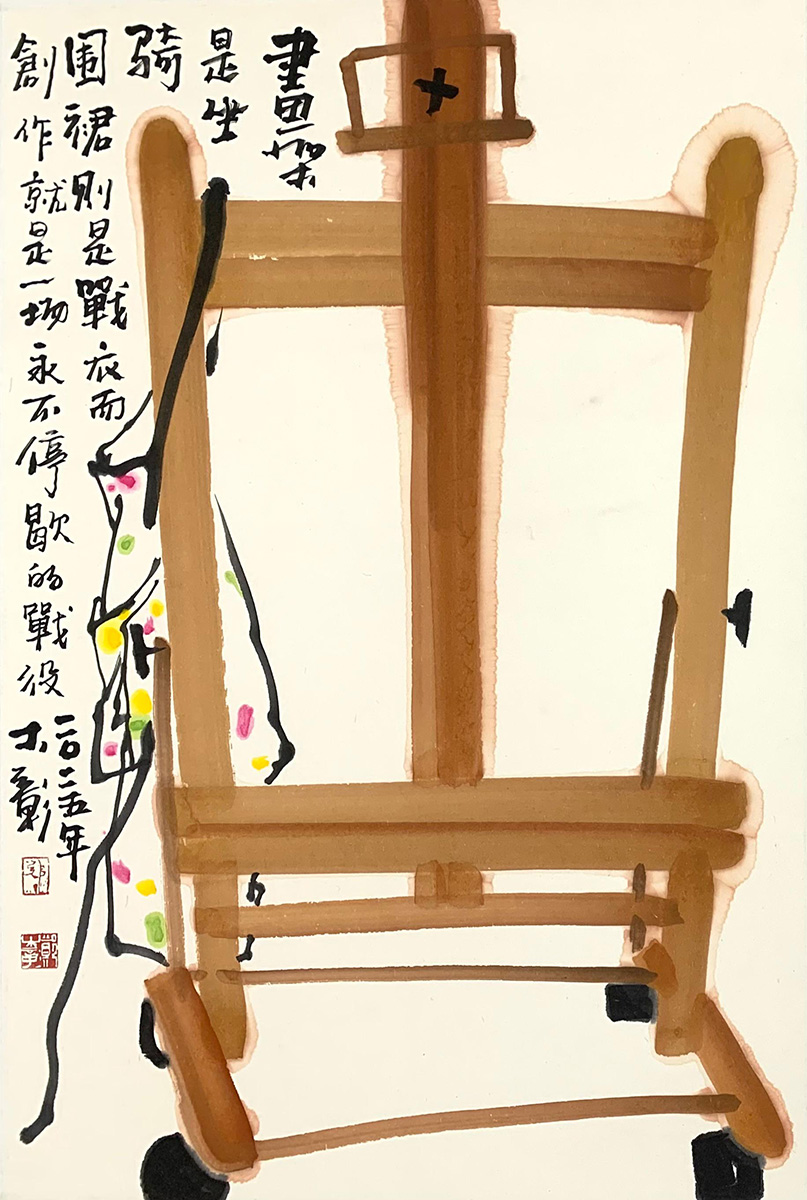 畫架
是坐
騎
圍裙則是戰衣而
創作就是一場永不停歇的戰役
二〇二五年